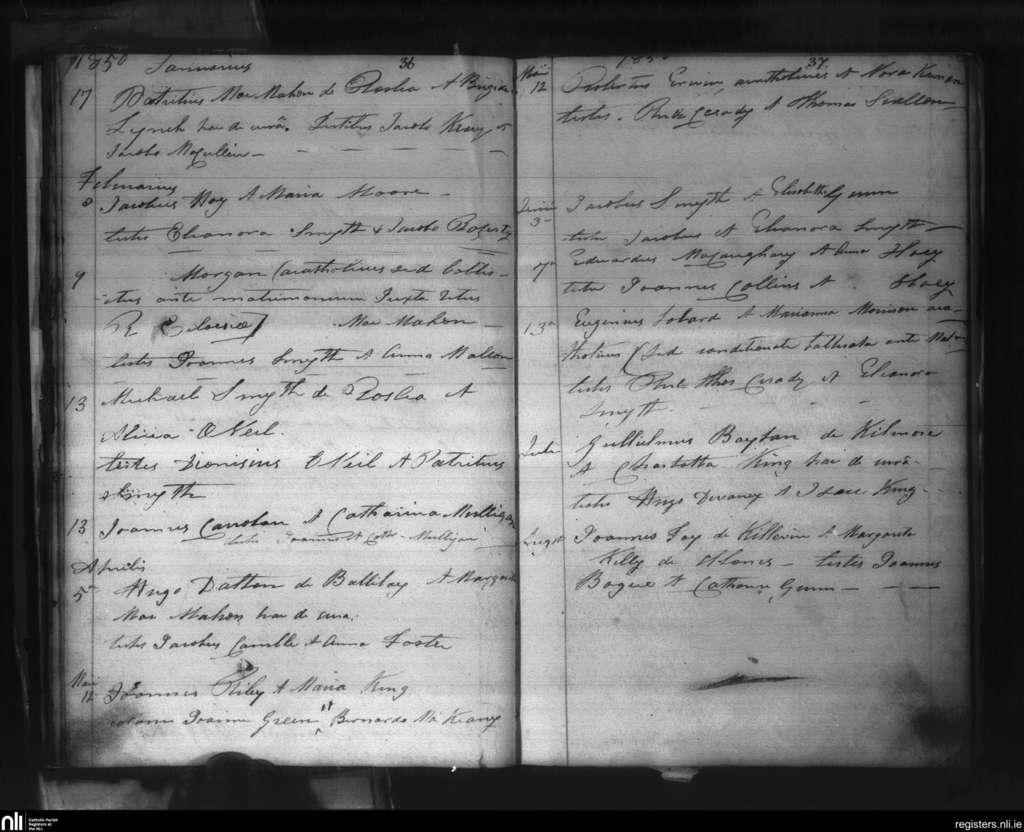 1850 Januarius 36
17 Patritius Mac Mahon de Roslea et Brigida
Lynch hac de curâ. Testibus Jacobo Keny et
Jacobo McCullen
Februarius
8 Jacobus Hoy et Maria Moore
testes Eleonora Smyth & Jacobo
9 Morgan (acatholicus sed
ante matrimonium Juxta ritus
R Eclesiæ) Mac Mahon
testes Joannes Smyth et Anna
13 Michael Smyth de Roslea et
Alicia O Neil.
testes Dionisius O Neil et Patritius
Smyth
13 Joannes Connolan et Catharina Mulligan
testes Joannes et Cath. Mulligan
Aprilis
5 Hugo Datton de Ballibay et Margarita
Mac Mahon hac de cura.
testes Jacobus Camble & Anna Foster
Maii
12 Joannes Riley et Maria King
coram Joanne Green et Bernardo Mc Keany
1850 37
Maii
12 Robertus Erwin, acatholicus et Nora Keenan
testes. Pat Cerady et Thomas Scallon
Junii
3 Jacobus Smyth et Elisabeth Gunn
testes Jacobus et Eleanora Smyth
7 Edwardus McCaughary et Anna Hoey
testes Joannes Collins et Hoey
13 Eugenius et Marianna Morrison aca-
tholicus (sed conditionate ante
testes Thos Cerady et Eleanora
Smyth.
Julii Gullielmus Boylan de Kilmore
et Charlotta King hac de curâ
testes Hugo Devaney et Isaac King
August Joannes Fay de Killevin et Margarita
Kelly de Clones testes Joannes
Bogue et Catharin Gunn
nli Catholic Parish
Registers at
the NLI
registers.nli.ie